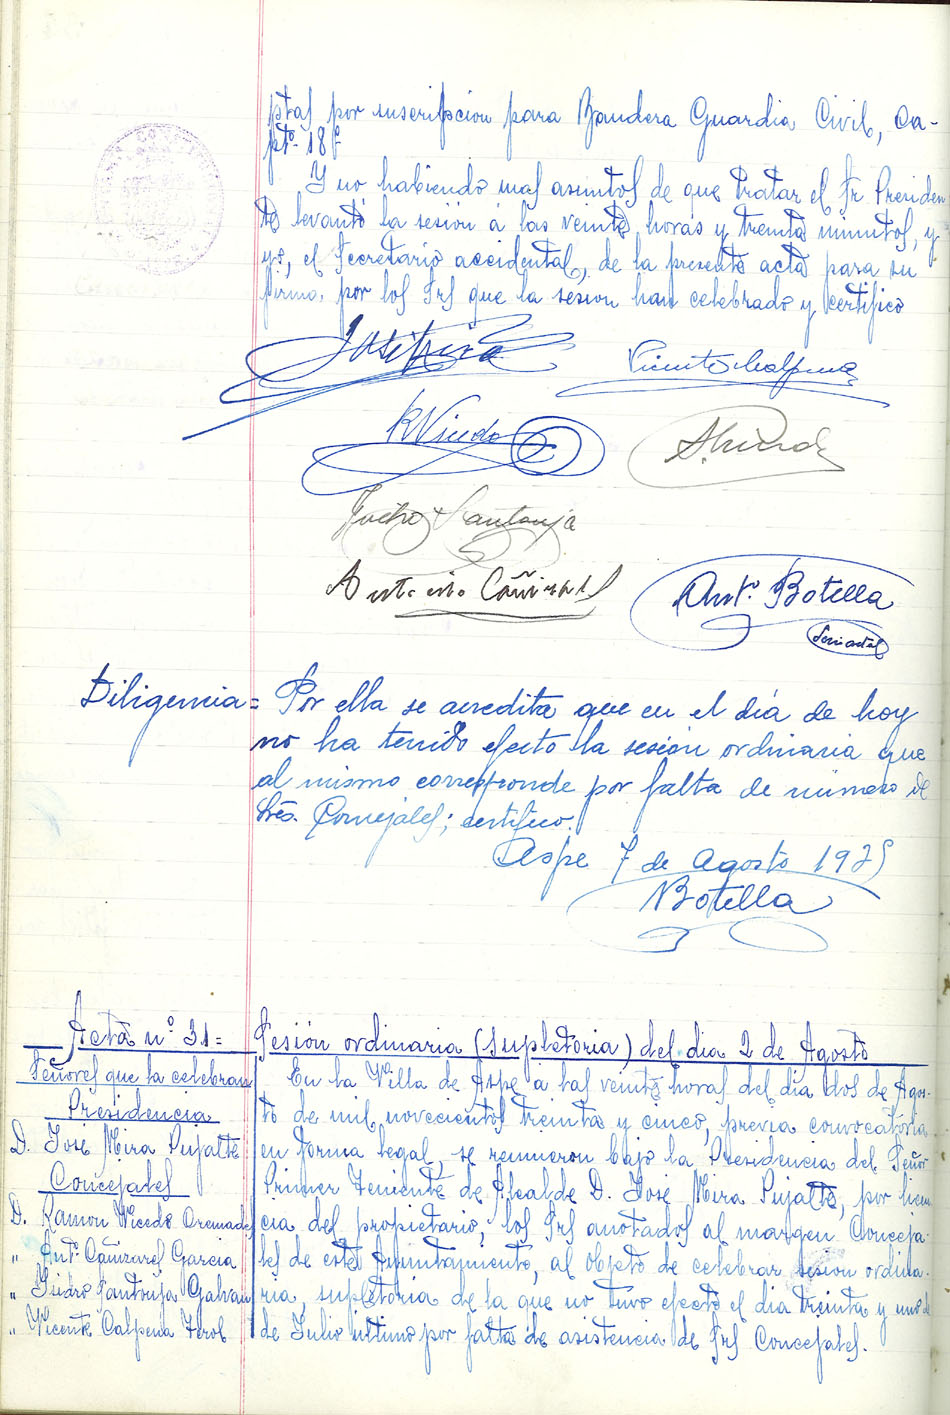 ptas por suscripcion para Bandera Guardia Civil, Ca-
ptº. 18º
Y no habiendo mas asuntos de que tratar el Sr. Presiden
te levantó la sesión á las veinte horas y treinta minutos, y
yo, el Secretario accidental, de la presente acta para su
firma, por los Srs que la sesion han celebrado y certifico
José Mira
Vicente Calpena
R Vicedo
Isidro Santonja
Antonio Cañizares
Antº. Botella
Diligencia = Por ella se acredita que en el dia de hoy
no ha tenido efecto la sesión ordinaria que
al mismo corresponde por falta de número de
Sres. Concejales; certifico.
Aspe 7 de Agosto 1935
Botella
Acta nº 31 =
Sesión ordinaria (Supletoria) del dia 2 de Agosto
Señores que la celebran
Presidencia
D. José Mira Pujalte
Concejales
D. Ramon Vicedo Cremades
" Antº. Cañizares Garcia
" Isidro Santonja Galvan
" Vicente Calpena Ferol
En la Villa de Aspe a las veinte horas del dia dos de Agos-
to de mil novecientos treinta y cinco, previa convocatoria
en forma legal, se reunieron bajo la Presidencia del Señor
Primer Teniente de Alcalde D. José Mira Pujalte, por licen
cia del propietario, los Srs anotados al margen Conceja-
les de este Ayuntamiento, al objeto de celebrar sesion ordina-
ria, supletoria de la que no tuvo efecto el dia treinta y uno de
de Julio último por falta de asistencia de Srs Concejales.